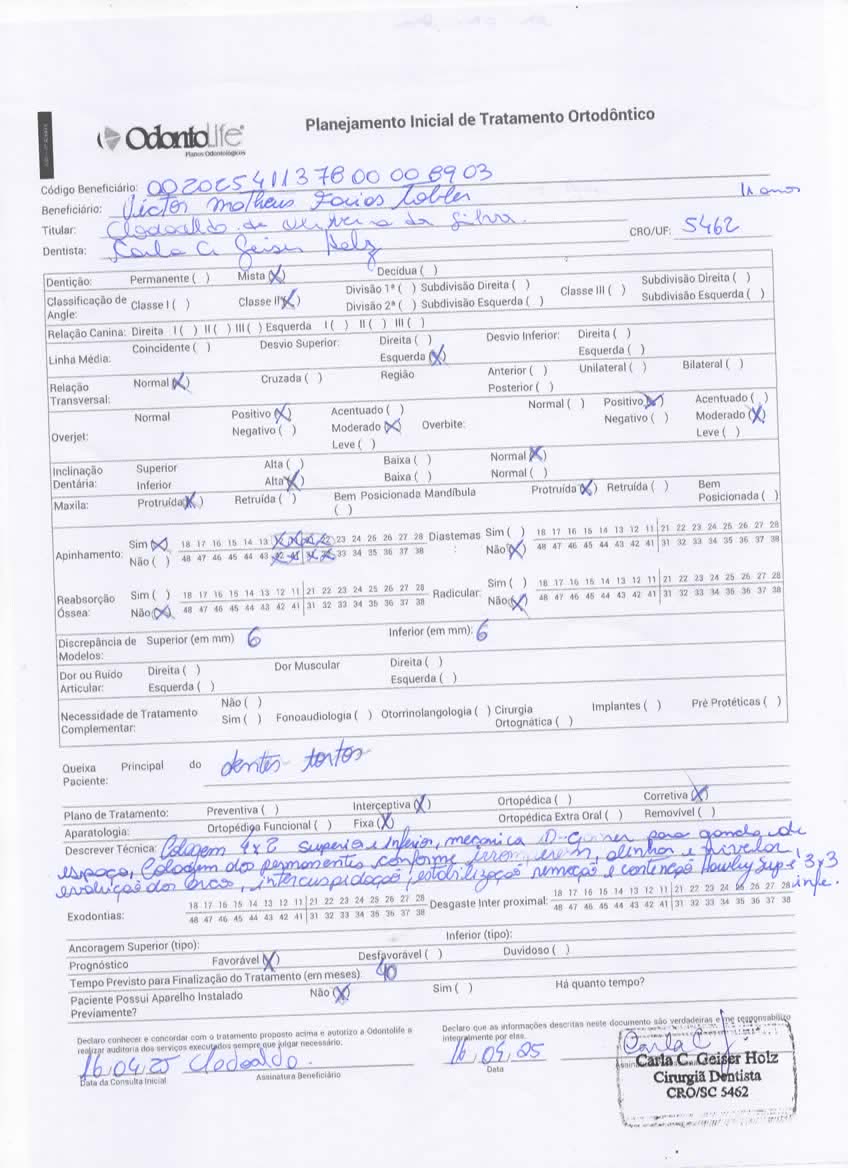 OdontoLife®
Planos Odontológicos
Planejamento Inicial de Tratamento Ortodôntico
Código Beneficiário: 0020254113780000 8903
Beneficiário: Victor Matheus Farias Tobler 11 anos
Titular: Clodoaldo de Oliveira da Silva.
Dentista: Carla C. Geiser Holz CRO/UF: 5462
Dentição: Permanente ( ) Mista (X) Decídua ( )
Classificação de Angle: Classe I ( ) Classe II (X) Divisão 1ª ( ) Subdivisão Direita ( ) Divisão 2ª ( ) Subdivisão Esquerda ( ) Classe III ( ) Subdivisão Direita ( ) Subdivisão Esquerda ( )
Relação Canina: Direita I ( ) II ( ) III ( ) Esquerda I ( ) II ( ) III ( )
Linha Média: Coincidente ( ) Desvio Superior: Direita ( ) Esquerda (X) Desvio Inferior: Direita ( ) Esquerda ( )
Relação Transversal: Normal (X) Cruzada ( ) Região Anterior ( ) Posterior ( ) Unilateral ( ) Bilateral ( )
Overjet: Normal Positivo (X) Negativo ( ) Acentuado ( ) Moderado (X) Leve ( ) Overbite: Normal ( ) Positivo (X) Negativo ( ) Acentuado ( ) Moderado (X) Leve ( )
Inclinação Dentária: Superior Alta ( ) Baixa ( ) Normal (X)
Inferior Alta (X) Baixa ( ) Normal ( )
Maxila: Protruída (X) Retruída ( ) Bem Posicionada ( ) Mandíbula Protruída (X) Retruída ( ) Bem Posicionada ( )
Apinhamento: Sim (X) 18 17 16 15 14 13 12 11 21 22 23 24 25 26 27 28 Diastemas: Sim ( ) 18 17 16 15 14 13 12 11 21 22 23 24 25 26 27 28
Não ( ) 48 47 46 45 44 43 42 41 31 32 33 34 35 36 37 38 Não (X) 48 47 46 45 44 43 42 41 31 32 33 34 35 36 37 38
Reabsorção Óssea: Sim ( ) 18 17 16 15 14 13 12 11 21 22 23 24 25 26 27 28 Radicular: Sim ( ) 18 17 16 15 14 13 12 11 21 22 23 24 25 26 27 28
Não (X) 48 47 46 45 44 43 42 41 31 32 33 34 35 36 37 38 Não (X) 48 47 46 45 44 43 42 41 31 32 33 34 35 36 37 38
Discrepância de Modelos: Superior (em mm) 6 Inferior (em mm): 6
Dor ou Ruído Articular: Direita ( ) Esquerda ( ) Dor Muscular Direita ( ) Esquerda ( )
Necessidade de Tratamento Complementar: Não ( ) Sim ( ) Fonoaudiologia ( ) Otorrinolangologia ( ) Cirurgia Ortognática ( ) Implantes ( ) Pré Protéticas ( )
Queixa Principal do Paciente: dentes tortos
Plano de Tratamento: Preventiva ( ) Interceptiva (X) Ortopédica ( ) Corretiva (X)
Aparatologia: Ortopédica Funcional ( ) Fixa (X) Ortopédica Extra Oral ( ) Removível ( )
Descrever Técnica: Colagem 4x2 Superior e Inferior, mecanica para de
espaço, Colagem dos permanentes conforme alinhar e nivelar,
evolução dos arcos, intercuspidação, estabilização remoção e contenção Hawley Sup e 3x3
infe.
Exodontias: 18 17 16 15 14 13 12 11 21 22 23 24 25 26 27 28 Desgaste Inter proximal: 18 17 16 15 14 13 12 11 21 22 23 24 25 26 27 28
48 47 46 45 44 43 42 41 31 32 33 34 35 36 37 38 48 47 46 45 44 43 42 41 31 32 33 34 35 36 37 38
Ancoragem Superior (tipo): Inferior (tipo):
Prognóstico Favorável (X) Desfavorável ( ) Duvidoso ( )
Tempo Previsto para Finalização do Tratamento (em meses): 40
Paciente Possui Aparelho Instalado Previamente? Não (X) Sim ( ) Há quanto tempo?
Declaro conhecer e concordar com o tratamento proposto acima e autorizo a Odontolife a
realizar auditoria dos serviços executados sempre que julgar necessário.
Declaro que as informações descritas neste documento são verdadeiras e me responsabilizo
integralmente por elas.
16,04,25 Clodoaldo. 16,04,25 Carla C
Data da Consulta Inicial Assinatura Beneficiário Data
Carla C. Geiser Holz
Cirurgiã Dentista
CRO/SC 5462